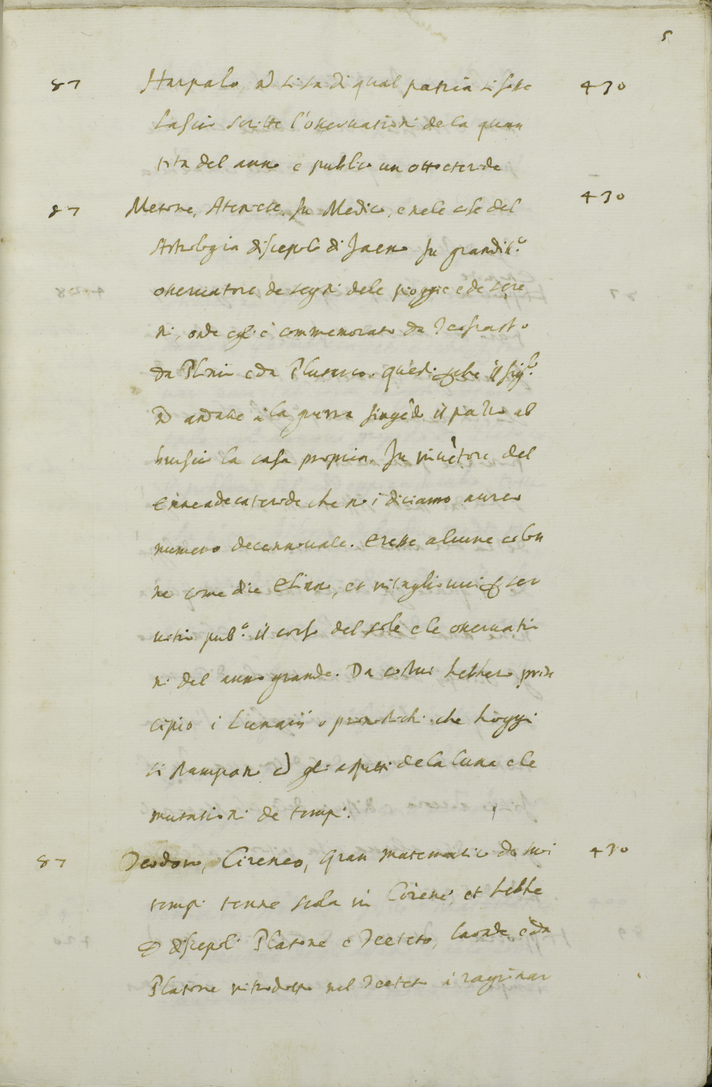 5
87 Harpalo, nō si sa di qual patria si fosse 430
lasciò scritte l'osservationi de la quan
tità del anno e publicò un ottoeteride
87 Metone, Ateniese, fu Medico, e nele cose del 430
Astrologia discepolo di Faeno fu grandiss.º
osservatore de segni dele pioggie e de sere
ni, onde egli è commemorato da Teofrasto
da Plinio e da Plutarco.
nō andare à la guerra il pazzo ab
brusciò la casa propria. fu invētore del
Enneadecateride che noi diciamo aureo
numero decennovale. Eresse alcune colon
ne come dice Eliano, et
pub.º il corso del sole e le osservatio
ni del anno grande. Da costui hebbero prin
cipio i Lunarii o pronostichi che hoggi
si stampano cō gli aspetti de la luna e le
mutationi de tempi.
87 Teodoro, Cireneo, gran matematico de suoi 430
tempi tenne scola in Cirene et hebbe
discepoli Platone e Teeteto, laonde è da
Platone introdotto nel Teeteto à ragionar